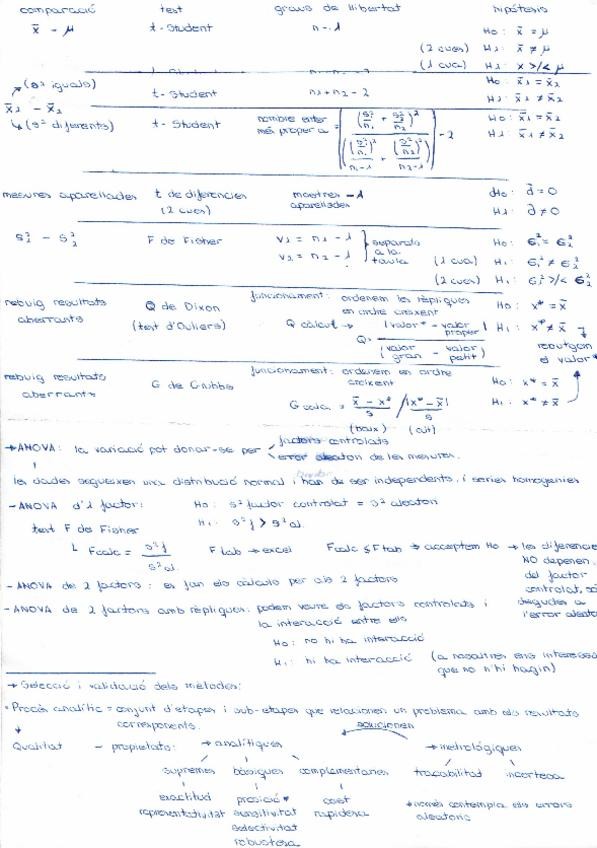 comparació test graus de llibertat hipòtesis
x̄ - μ t-Student n-1 H0: x̄ = μ
(2 cues) H1: x̄ ≠ μ
(1 cua) H1: x̄ >/< μ
(s² iguals) H0: x̄1 = x̄2
x̄1 - x̄2 t-Student n1+n2-2 H1: x̄1 ≠ x̄2
(s² diferents) t-Student nombre enter més proper a = ((s1²/n1 + s2²/n2)² / ((s1²/n1)²/(n1-1) + (s2²/n2)²/(n2-1))) - 2 H0: x̄1 = x̄2
H1: x̄1 ≠ x̄2
mesures aparellades t de diferències mostres -1 H0: d̄ = 0
(2 cues) aparellades H1: d̄ ≠ 0
s1² - s2² F de Fisher v1 = n1 - 1 } separats H0: σ1² = σ2²
v2 = n2 - 1 a la taula (1 cua) H1: σ1² ≠ σ2²
(2 cues) H1: σ1² >/< σ2²
rebuig resultats Q de Dixon funcionament: ordenem les rèpliques H0: x* = x̄
aberrants (test d'Outliers) en ordre creixent
Q càlcul → Q = |valor* - valor proper| / |valor gran - valor petit| H1: x* ≠ x̄
rebutgem
el valor*
rebuig resultats G de Grubbs funcionament: ordenem en ordre
aberrants creixent H0: x* = x̄
G calc = x̄ - x* / s / |x* - x̄| / s H1: x* ≠ x̄
(baix) (alt)
→ ANOVA: la variació pot donar-se per factors controlats
error aleatori de les mesures.
les dades segueixen una distribució normal i han de ser independents, i sèries homogènies
- ANOVA d'1 factor: H0: s² factor controlat = s² aleatori
test F de Fisher H1: s²f > s²al.
Fcalc = s²f / s²al. F tab → excel Fcalc ≤ Ftab → acceptem H0 → les diferències
NO depenen
del factor
controlat, só
degudes a
l'error aleato
- ANOVA de 2 factors: es fan els càlculs per als 2 factors
- ANOVA de 2 factors amb rèpliques: podem veure els factors controlats i
la interacció entre ells
H0: no hi ha interacció
H1: hi ha interacció (a nosaltres ens interessa
que no n'hi hagin)
→ Selecció i validació dels mètodes:
• Procés analític = conjunt d'etapes i sub-etapes que relacionen un problema amb els resultats
corresponents. solucionen
Qualitat - propietats: → analítiques → metrològiques
supremes bàsiques complementàries traçabilitat incertesa
exactitud precisió* cost * només contempla els errors
representativitat sensitivitat rapidesa aleatoris
selectivitat
robustesa